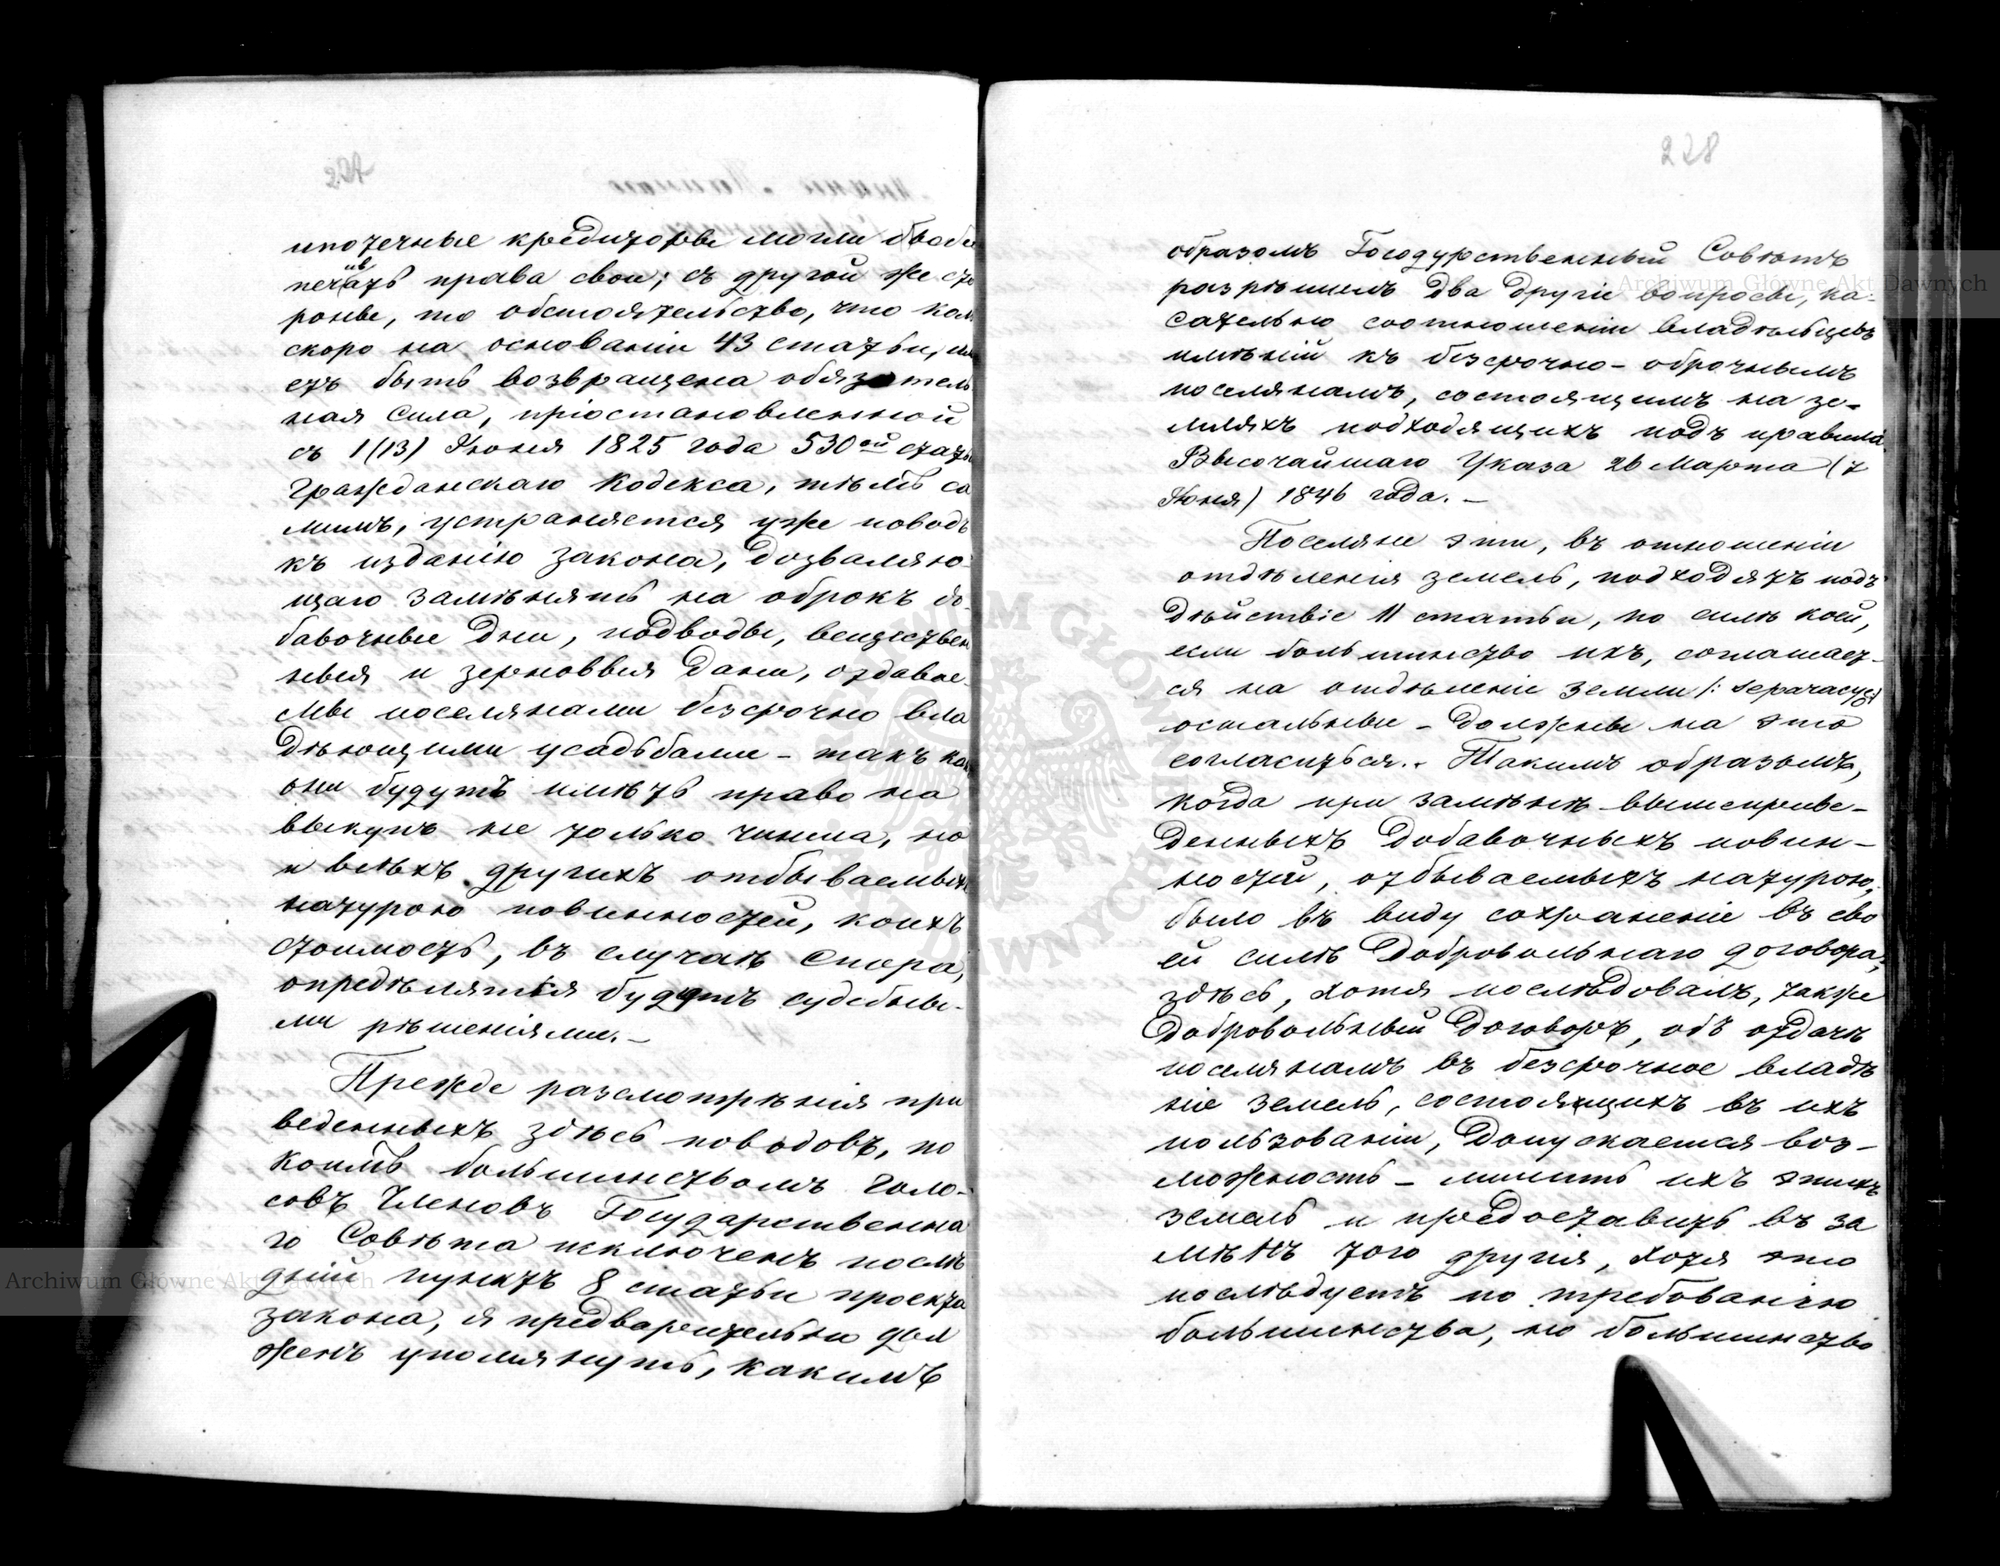 ипотечные кредиторы могли обезпе
печать права свои; съ другой же сто
роны, то обстоятельство, что коль
скоро на основаніи 43 статьи, им
етъ быть возвращена обязатель
ная сила, пріостановленной
съ 1(13) Іюня 1825 года 530ой статьи
Гражданскаго Кодекса, тѣмъ са
мымъ, устраняется уже поводъ
къ изданію закона, дозваляю-
щаго замѣнять на оброкъ до-
бавочные дни, подводы, веществен
ныя и зерновыя дани, отдавае-
мы поселянами безсрочно вла
дѣющими усадьбами - такъ какъ
они будутъ имѣть право на
выкупъ не только чинша, но
и всѣхъ другихъ отбываемыхъ
натурою повинностей, коихъ
стоимость, въ случаѣ спора,
опредѣляться будутъ судебны-
ми рѣшеніями. -
Прежде разсмотрѣнія при
веденныхъ здѣсь поводовъ, по
коимъ большинствомъ голо-
совъ Членовъ Государственна
го Совѣта исключенъ послѣ
дній пунктъ 8 статьи проекта
закона, я предварительно дол
женъ упомянуть, какимъ
228
образомъ Государственный Совѣтъ
разрѣшилъ два другіе вопросы, ка-
сательно соотношеніи владѣльцевъ
имѣній къ безсрочно-оброчнымъ
поселянамъ, состоящимъ на зе-
мляхъ подходящихъ подъ правила
Высочайшаго Указа 26 Марта (7
Іюня) 1846 года. -
Поселяне эти, въ отношеніи
отдѣленія земель, подходятъ подъ
дѣйствіе 11 статьи, по силѣ коей,
если большинство ихъ, соглашает-
ся на отдѣленіе земли /: сепарацію:/
остальные - должны на это
согласиться. - Такимъ образомъ,
когда при замѣнѣ вышеприве-
денныхъ добавочныхъ повин-
ностей, отбываемыхъ натурою,
было въ виду сохраненіе въ сво
ей силѣ добровольнаго договора,
здѣсь, хотя послѣдовалъ, также
добровольный договоръ, объ отдачѣ
поселянамъ въ безсрочное владѣ
ніе земель, состоящихъ въ ихъ
пользованіи, допускается воз-
можность - лишить ихъ этихъ
земель и предоставить въ за
мѣнъ того другія, хотя это
послѣдуетъ по требованію
большинства, но большинство
Archiwum Główne Akt Dawnych
Archiwum Główne Akt Dawnych